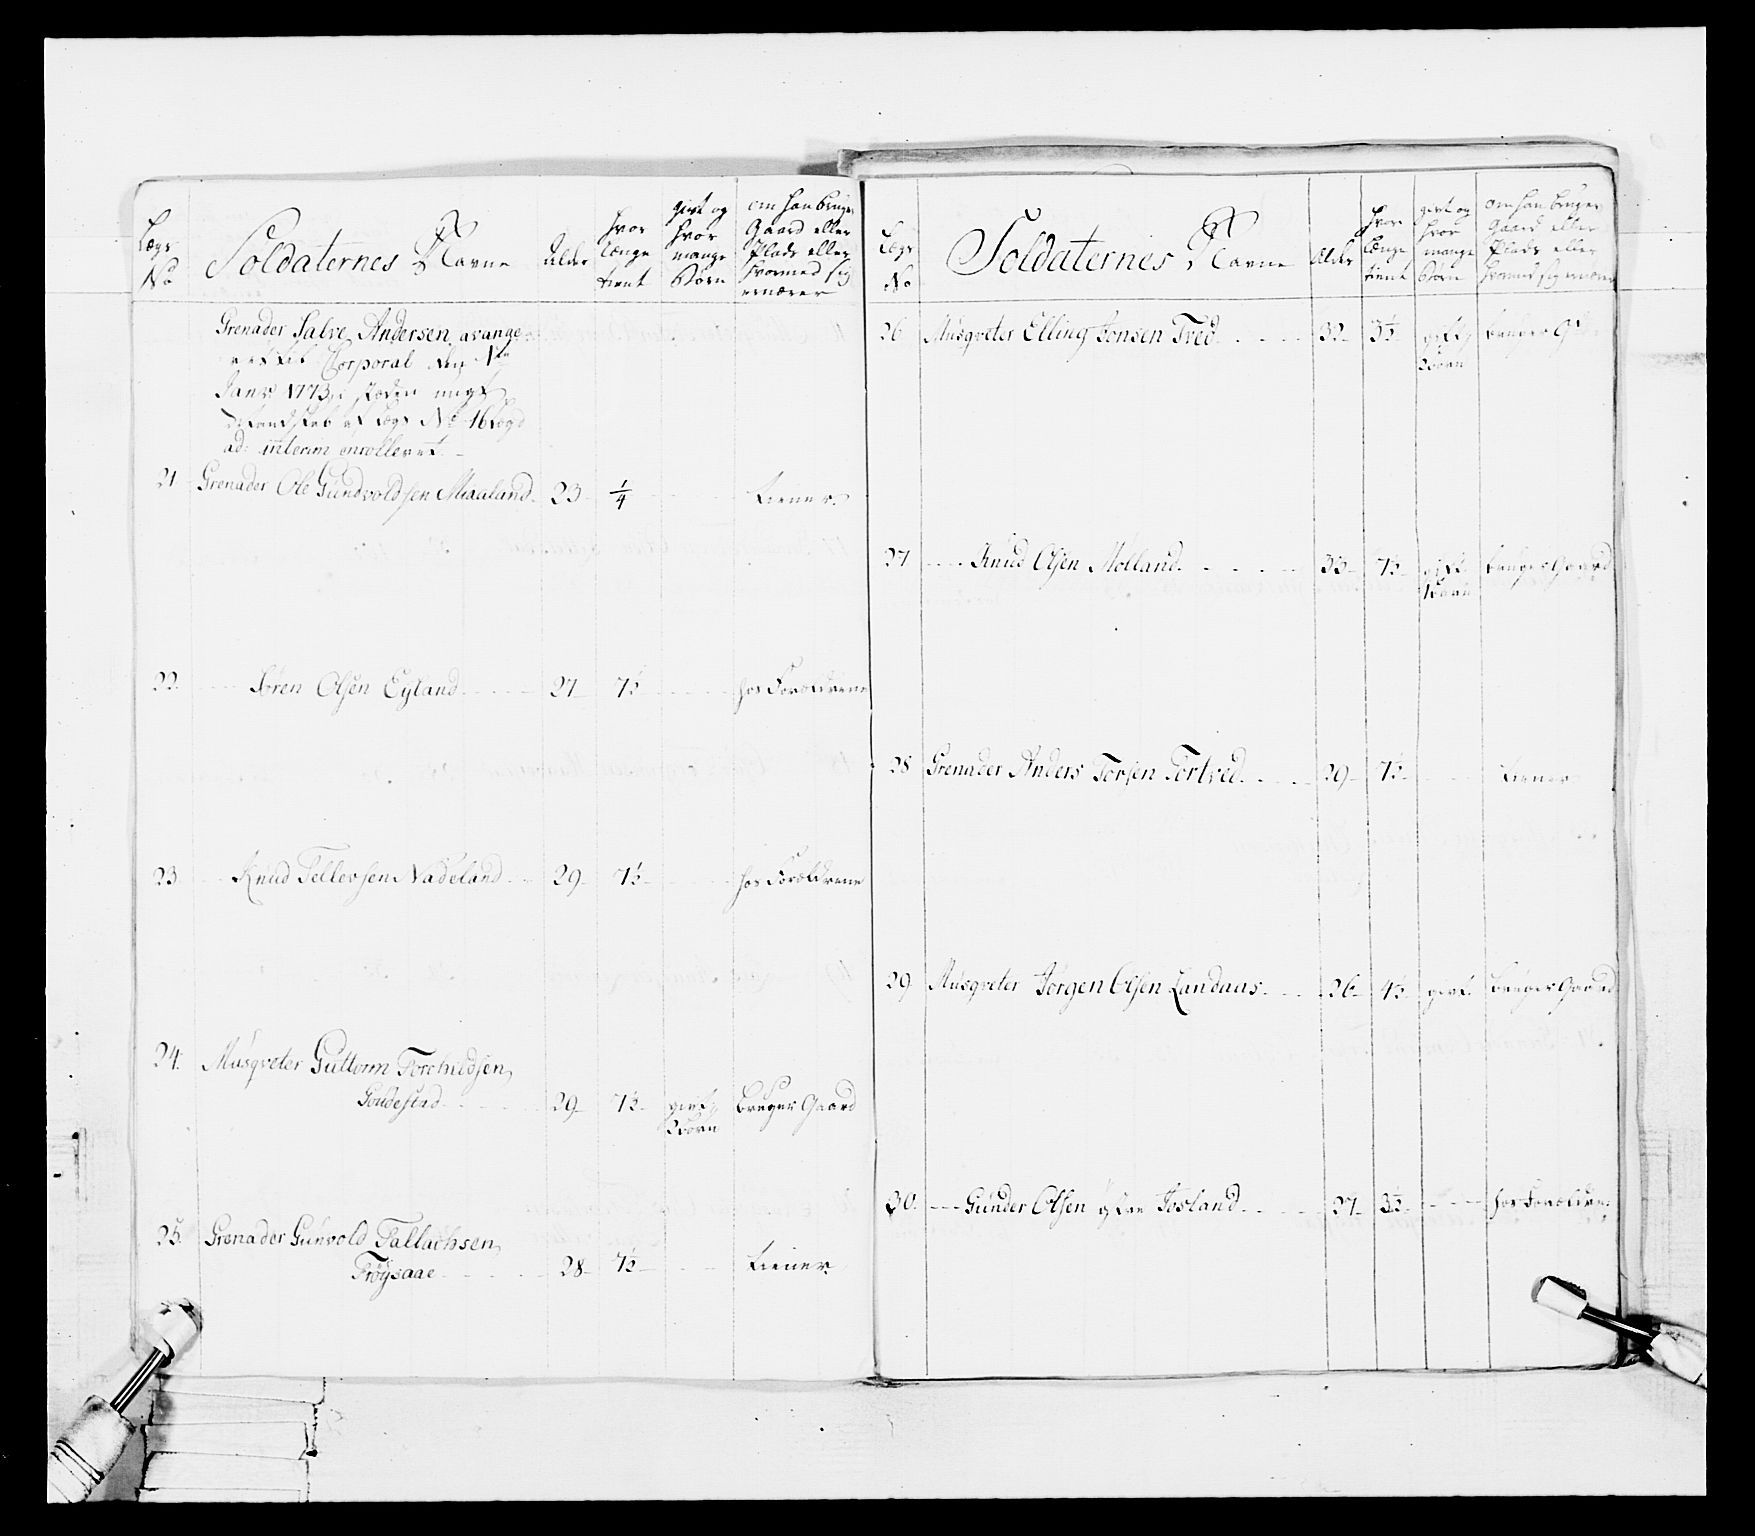 Lægs No
Soldaternes Navne
Alder
hvor længe tient
givt og hvor mange Børn
om han bruger Gaard eller Plads eller hvormed sig ernærer
Grenader Salve Andersen avange-
Corporal den 1te
Janr 1773, i stæden
af Lægs No 16
ad: interim enrolleret. -
21 Grenader Ole Gundvoldsen Maaland. 23 1/4 tiener.
22. Søren Olsen Eyland 27 7½ hos Forældrene
23 Knud Tellevsen Nadeland 29 7½ hos Forældrene
24. Musqveter Guttorm Torchildsen,
29 7½ givt, bruger Gaard
2 børn
25. Grenader Gunvold Tallachsen,
Frøysaae 28 7½ tiener.
Lægs No
Soldaternes Navne
Alder
hvor længe tient
givt og hvor mange Børn
om han bruger Gaard eller Plads eller hvormed sig ernærer
26 Musqveter Elling Jonsen Tved 32 3½ gift, bruger Gd
børn
27 Knud Olsen Molland 33 7½ gift bruger Gaard
1 barn
28 Grenader Anders Torsen Tortved 29 7½ tiener
29 Musqveter Jørgen Olsen Landaas 26 4½ givt. bruger Gaard
30. Gunder Olsen Øfre Fosland 27 3½ hos Forældre: